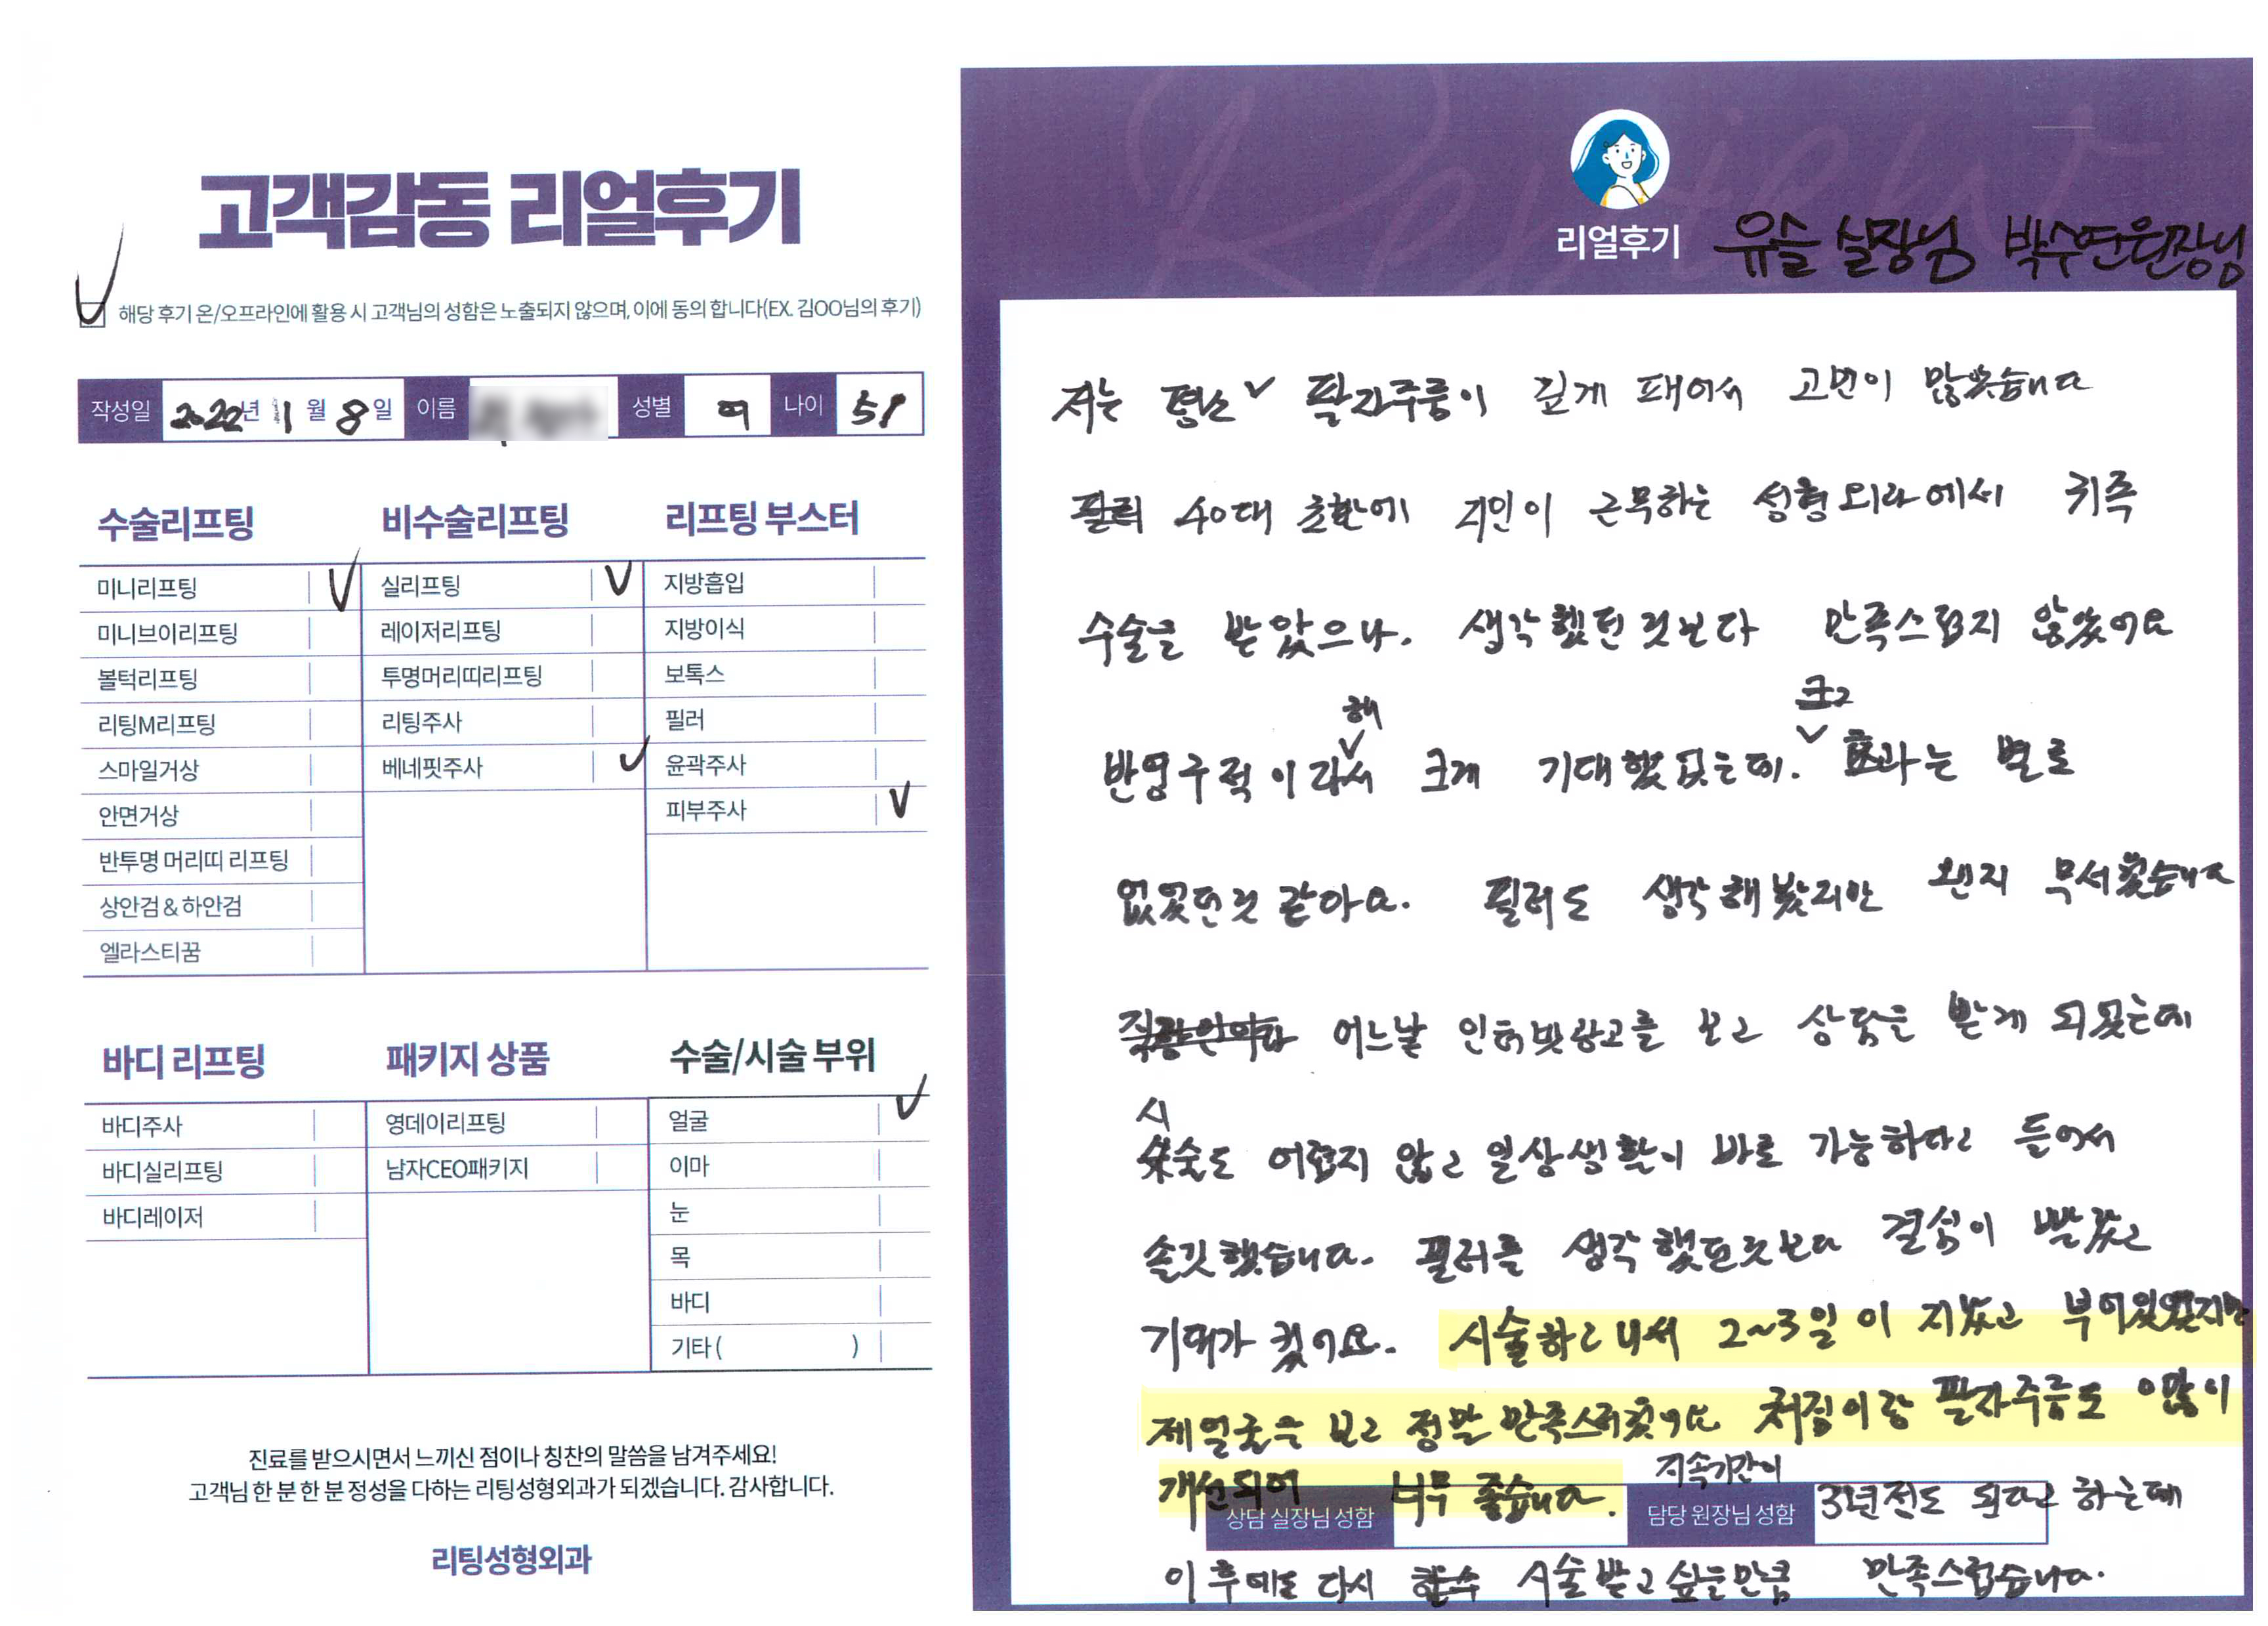 고객감동 리얼후기
해당 후기 온/오프라인에 활용 시 고객님의 성함은 노출되지 않으며, 이에 동의 합니다(EX. 김OO님의 후기)
작성일 2022년 11월 8일 이름 성별 여 나이 51
수술리프팅
미니리프팅
미니브이리프팅
볼턱리프팅
리팅M리프팅
스마일거상
안면거상
반투명 머리띠 리프팅
상안검 & 하안검
엘라스티꿈
비수술리프팅
실리프팅
레이저리프팅
투명머리띠리프팅
리팅주사
베네핏주사
리프팅 부스터
지방흡입
지방이식
보톡스
필러
윤곽주사
피부주사
바디 리프팅
바디주사
바디실리프팅
바디레이저
패키지 상품
영데이리프팅
남자CEO패키지
수술/시술 부위
얼굴
이마
눈
목
바디
기타 ( )
진료를 받으시면서 느끼신 점이나 칭찬의 말씀을 남겨주세요!
고객님 한 분 한 분 정성을 다하는 리팅성형외과가 되겠습니다. 감사합니다.
리팅성형외과
Review
리얼후기 유슬 실장님 박수연원장님
저는 평소 팔자주름이 깊게 패어서 고민이 많았습니다
40대 초반에 지인이 근무하는 성형외과에서 귀족
수술을 받았으나. 생각했던것보다 만족스럽지 않았어요
반영구적이라해서 크게 기대했었는데. 크고 효과는 별로
없었던것 같아요. 필러도 생각해봤지만 왠지 무서웠습니다
어느날 인터넷광고를 보고 상담을 받게 되었는데
시술도 어렵지 않고 일상생활이 바로 가능하다고 들어서
솔깃했습니다. 필러를 생각했던것보다 결심이 빨랐고
기대가 컸어요. 시술하고나서 2~3일이 지났고 부어있었지만
제얼굴을 보고 정말 만족스러웠어요 처짐이랑 팔자주름도 많이
개선되어 너무 좋습니다. 지속기간이 3년정도 된다고 하는데
상담 실장님 성함 담당 원장님 성함
이후에도 다시 시술받고 싶을만큼 만족스럽습니다.